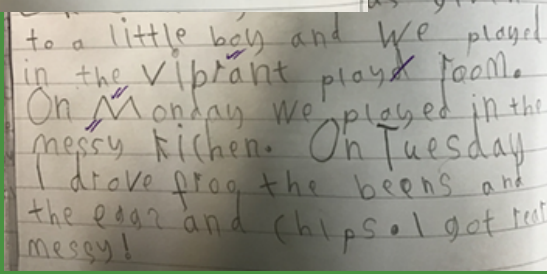 to a little boy and We played
in the vibrant play room.
On Monday We played in the
messy kichen. On Tuesday
I drove the beens and
the and chips. I got
messy!